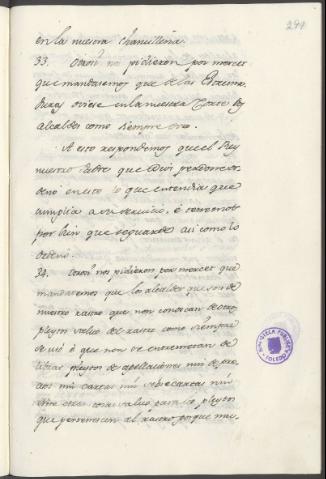 291
en la nuestra chancilleria.
33. Otrosi nos pidieron por merced
que mandasemos que de las Estrema-
duras oviese en la nuestra Corte dos
alcaldes como siempre ovo.
A esto respondemos que el Rey
nuestro Padre que Dios perdone or-
denó en esto lo que entendia que
cumplia a su servicio, é tenemos
por bien que se guarde asi como lo
ordenó.
34. Otrosi nos pidieron por merced que
mandasemos que los alcaldes que son de
nuestro rastro que non conoscan de otros
pleytos salvo del rastro como siempre
se usó é que non se entremetan de
librar pleytos de apellaciones nin de
nin cartas nin sobrecartas nin
otras cosas salvo tan solo pleytos
que pertenescen al rastro porque
BIBLIOTECA PUBLICA
TOLEDO